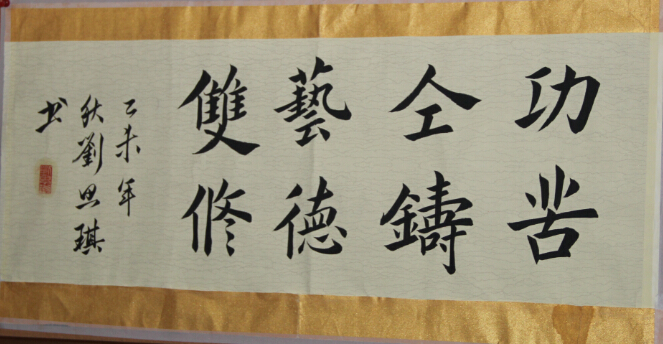 功苦
仝鑄
藝德
雙修
乙未年
秋劉思琪
书